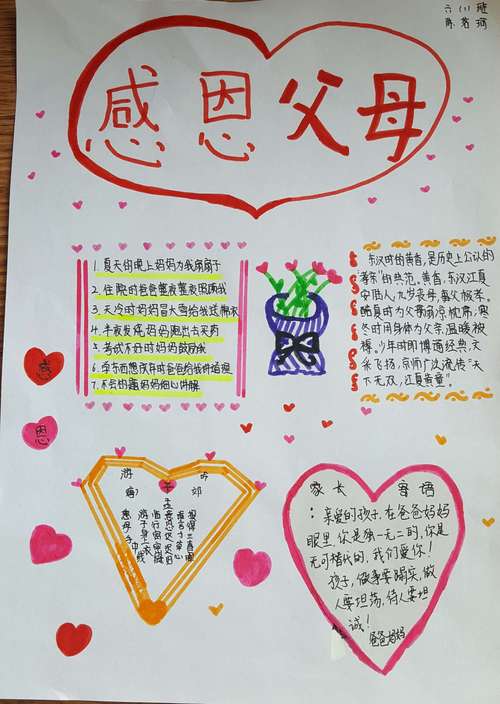 六(1)班
感恩父母
1.夏天的晚上妈妈为我扇扇子
2.住院时爸爸整夜整夜照顾我
3.天冷时妈妈冒大雪给我送棉衣
4.半夜发烧妈妈跑出去买药
5.考试不好时妈妈鼓励我
6.学东西想放弃时爸爸给我讲道理
7.不会的题妈妈细心讲解
东汉时的黄香,是历史上公认的
"孝亲"的典范。黄香,东汉江夏
中国人,九岁丧母,事父极孝。
酷夏时为父亲扇凉枕席,寒
冬时用身体为父亲温暖被
褥。少年时即博通经典,文
采飞扬,京师广泛流传"天
下无双,江夏黄童"。
感
恩
游
子
吟
孟郊
慈母手中线
游子身上衣
临行密密缝
意恐迟迟归
谁言寸草心
报得三春晖
家长寄语
:亲爱的孩子,在爸爸妈妈
眼里,你是独一无二的,你是
无可替代的,我们爱你!
孩子,做事要踏实,做
人要坦荡,待人要坦
诚!
爸爸妈妈